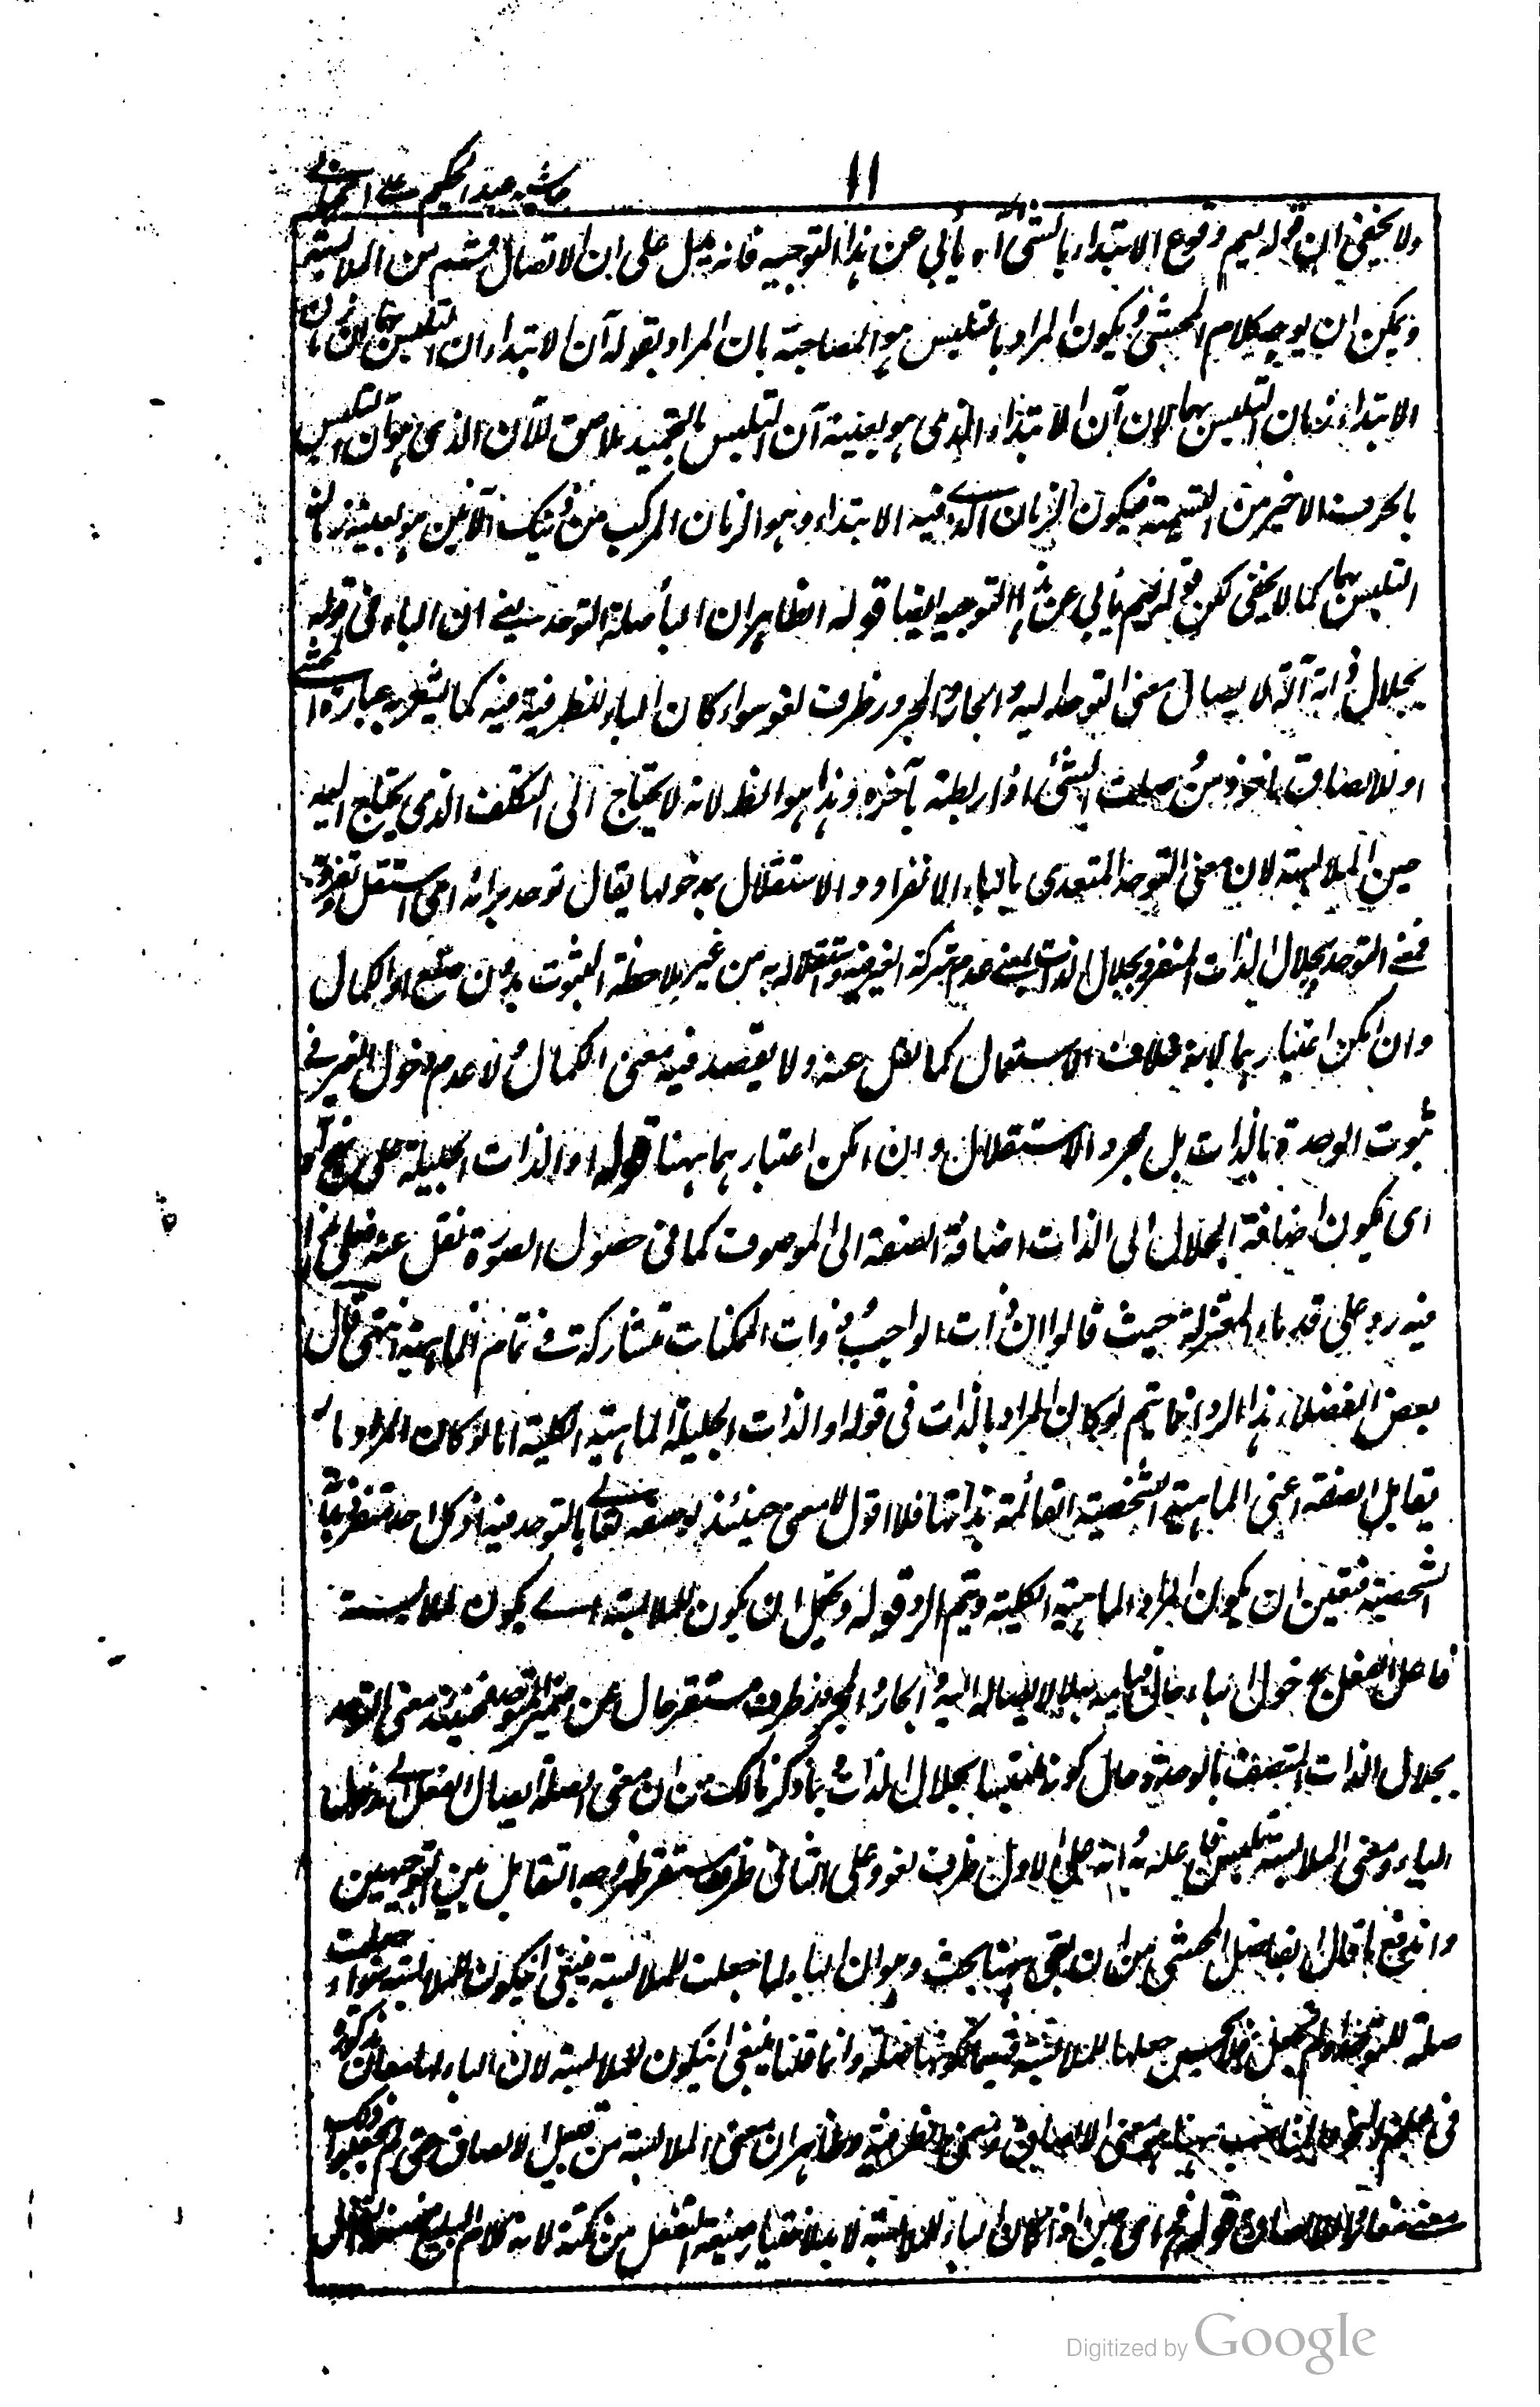 ١١
حاشيه عبد الحكيم على الخيالى
ولا يخفى ان قوله يعم وقوع الابتداء بالشئ آه يأبى عن هذا التوجيه فانه يدل على ان الاتصال قسم من الملابسة
ويمكن ان يوجه كلام المحشى ويكون المراد بالتلبس هو المصاحبة بان المراد بقوله آن الابتداء آن التلبس بهما ان زمان
الابتداء زمان التلبس بهما لان آن الابتداء الذى هو بعينه آن التلبس بالتحميد ملاصق للآن الذى هو آن التلبس
بالحرف الاخير من التسمية فيكون الزمان الذى فيه الابتداء وهو الزمان المركب من ذينك الآنين هو بعينه زمان
التلبس بهما كما لا يخفى لكن قوله يعم يأبى عن هذا التوجيه ايضا قوله الظاهر ان الباء صلة التوحد يعنى ان الباء فى قوله
بجلال ذاته آلة لايصال معنى التوحد اليه والجار والمجرور ظرف لغو سواء كان الباء للظرفية فيه كما يشعر به عبارة المحشى
او للالصاق ماخوذ من صلت الشئ اذا ربطته بآخره وهذا هو الظ لانه لا يحتاج الى التكلف الذى يحتاج اليه
حين الملابسة لان معنى التوحد المتعدى بالباء الانفراد والاستقلال بمدخولها يقال توحد برائه اى استقل وتفرد به
فمعنى المتوحد بجلال الذات المنفرد بجلال الذات بمعنى عدم شركة الغير فيه واستقلاله به من غير ملاحظة الثبوت بدون صنع او الكمال
وان امكن اعتبارهما لانه خلاف الاستعمال كما نقل عنه ولا يقصد فيه معنى الكمال ولا عدم دخول الغير فى
ثبوت الوحدة بالذات بل مجرد الاستقلال وان امكن اعتبارهما ههنا قوله او الذات الجليلة على نهج آه
اى يكون اضافة الجلال الى الذات اضافة الصفة الى الموصوف كما فى حصول الصورة نقل عنه فعلى هذا
فيه رد على قدماء المعتزلة حيث قالوا ان ذات الواجب وذوات الممكنات متشاركة فى تمام الماهية انتهى قال
بعض الفضلاء هذا الرد انما يتم لو كان المراد بالذات فى قوله او الذات الجليلة الماهية الكلية اما لو كان المراد ما
يقابل الصفة اعنى الماهية الشخصية القائمة بذاتها فلا اقول لا معنى حينئذ لوصفه تعالى بالتوحد فيه اذ كل احد متفرد بذاته
الشخصية فتعين ان يكون المراد الماهية الكلية ويتم الرد قوله ويحتمل ان يكون للملابسة اى يكون لملابسة
فاعل الفعل بمدخول الباء حال قيامه به لا لايصاله اليه والجار والمجرور ظرف مستقر حال عن ضمير المتوحد فحينئذ معنى التوحد
بجلال الذات المتصف بالوحدة حال كونه متلبسا بجلال الذات وبما ذكرنا لك من ان معنى الصلة ايصال الفعل الى مدخول
الباء ومعنى الملابسة تلبس فاعله به وانه على الاول ظرف لغو وعلى الثانى ظرف مستقر ظهر وجه التقابل بين التوجيهين
واندفع ما قال الفاضل المحشى من ان بقى ههنا بحث وهو ان الباء لما جعلت للملابسة ينبغى ان يكون للملابسة سواء جعلت
صلة للتوحد او لم تجعل فلا يحسن جعلها للملابسة قسيما لكونها صلة وانما قلنا ينبغى ان يكون للملابسة لان الباء لها معان مذكورة
فى علم النحو والمناسب ههنا معنى الالصاق ومعنى الظرفية وظاهر ان معنى الملابسة من قبيل الالصاق حتى لم يجعلوا ذلك
معنى مغائرا للالصاق قوله فح اى حين اذا كان الباء للملابسة لا بد لاختيار صيغة التفعل من نكتة لانه كلام البليغ